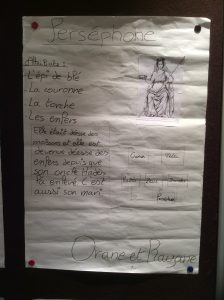 Perséphone
Attributs :
L'épi de blé
La couronne
La torche
Les enfers
Elle était déesse des
moissons et elle est
devenue déesse des
enfers depuis que
son oncle Hades
l'a enlevé. C'est
aussi son mari
Zeus
Orane et